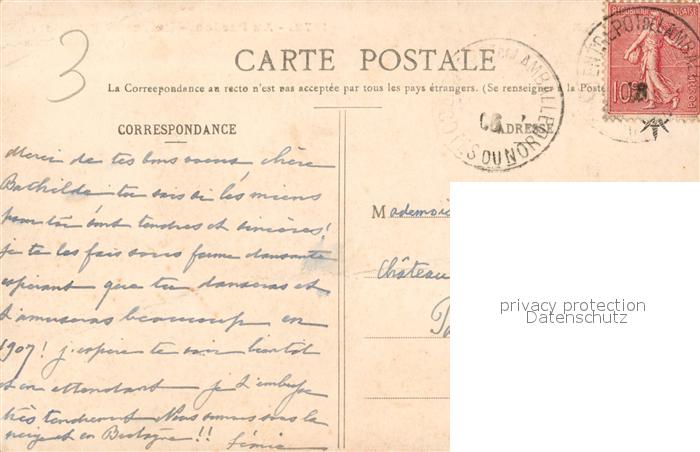 3
CARTE POSTALE
La Correspondance au recto n'est pas acceptée par tous les pays étrangers. (Se renseigner à la Poste
CORRESPONDANCE
ADRESSE
Merci de tes bons voeux chère
Bathilde tu sais si les miens
pour toi sont tendres et sincères!
je te les fais sous forme dansante
espérant que tu danseras et
t'amuseras beaucoup en
1907! j'espère te voir bientôt
et en attendant je t'embrasse
très tendrement Nous sommes sous la
neige et en Bretagne!!
Mademois
Château
privacy protection
Datenschutz
ENTREPOT DE LAMBALLE
LAMBALLE
COTES DU NORD
06
10